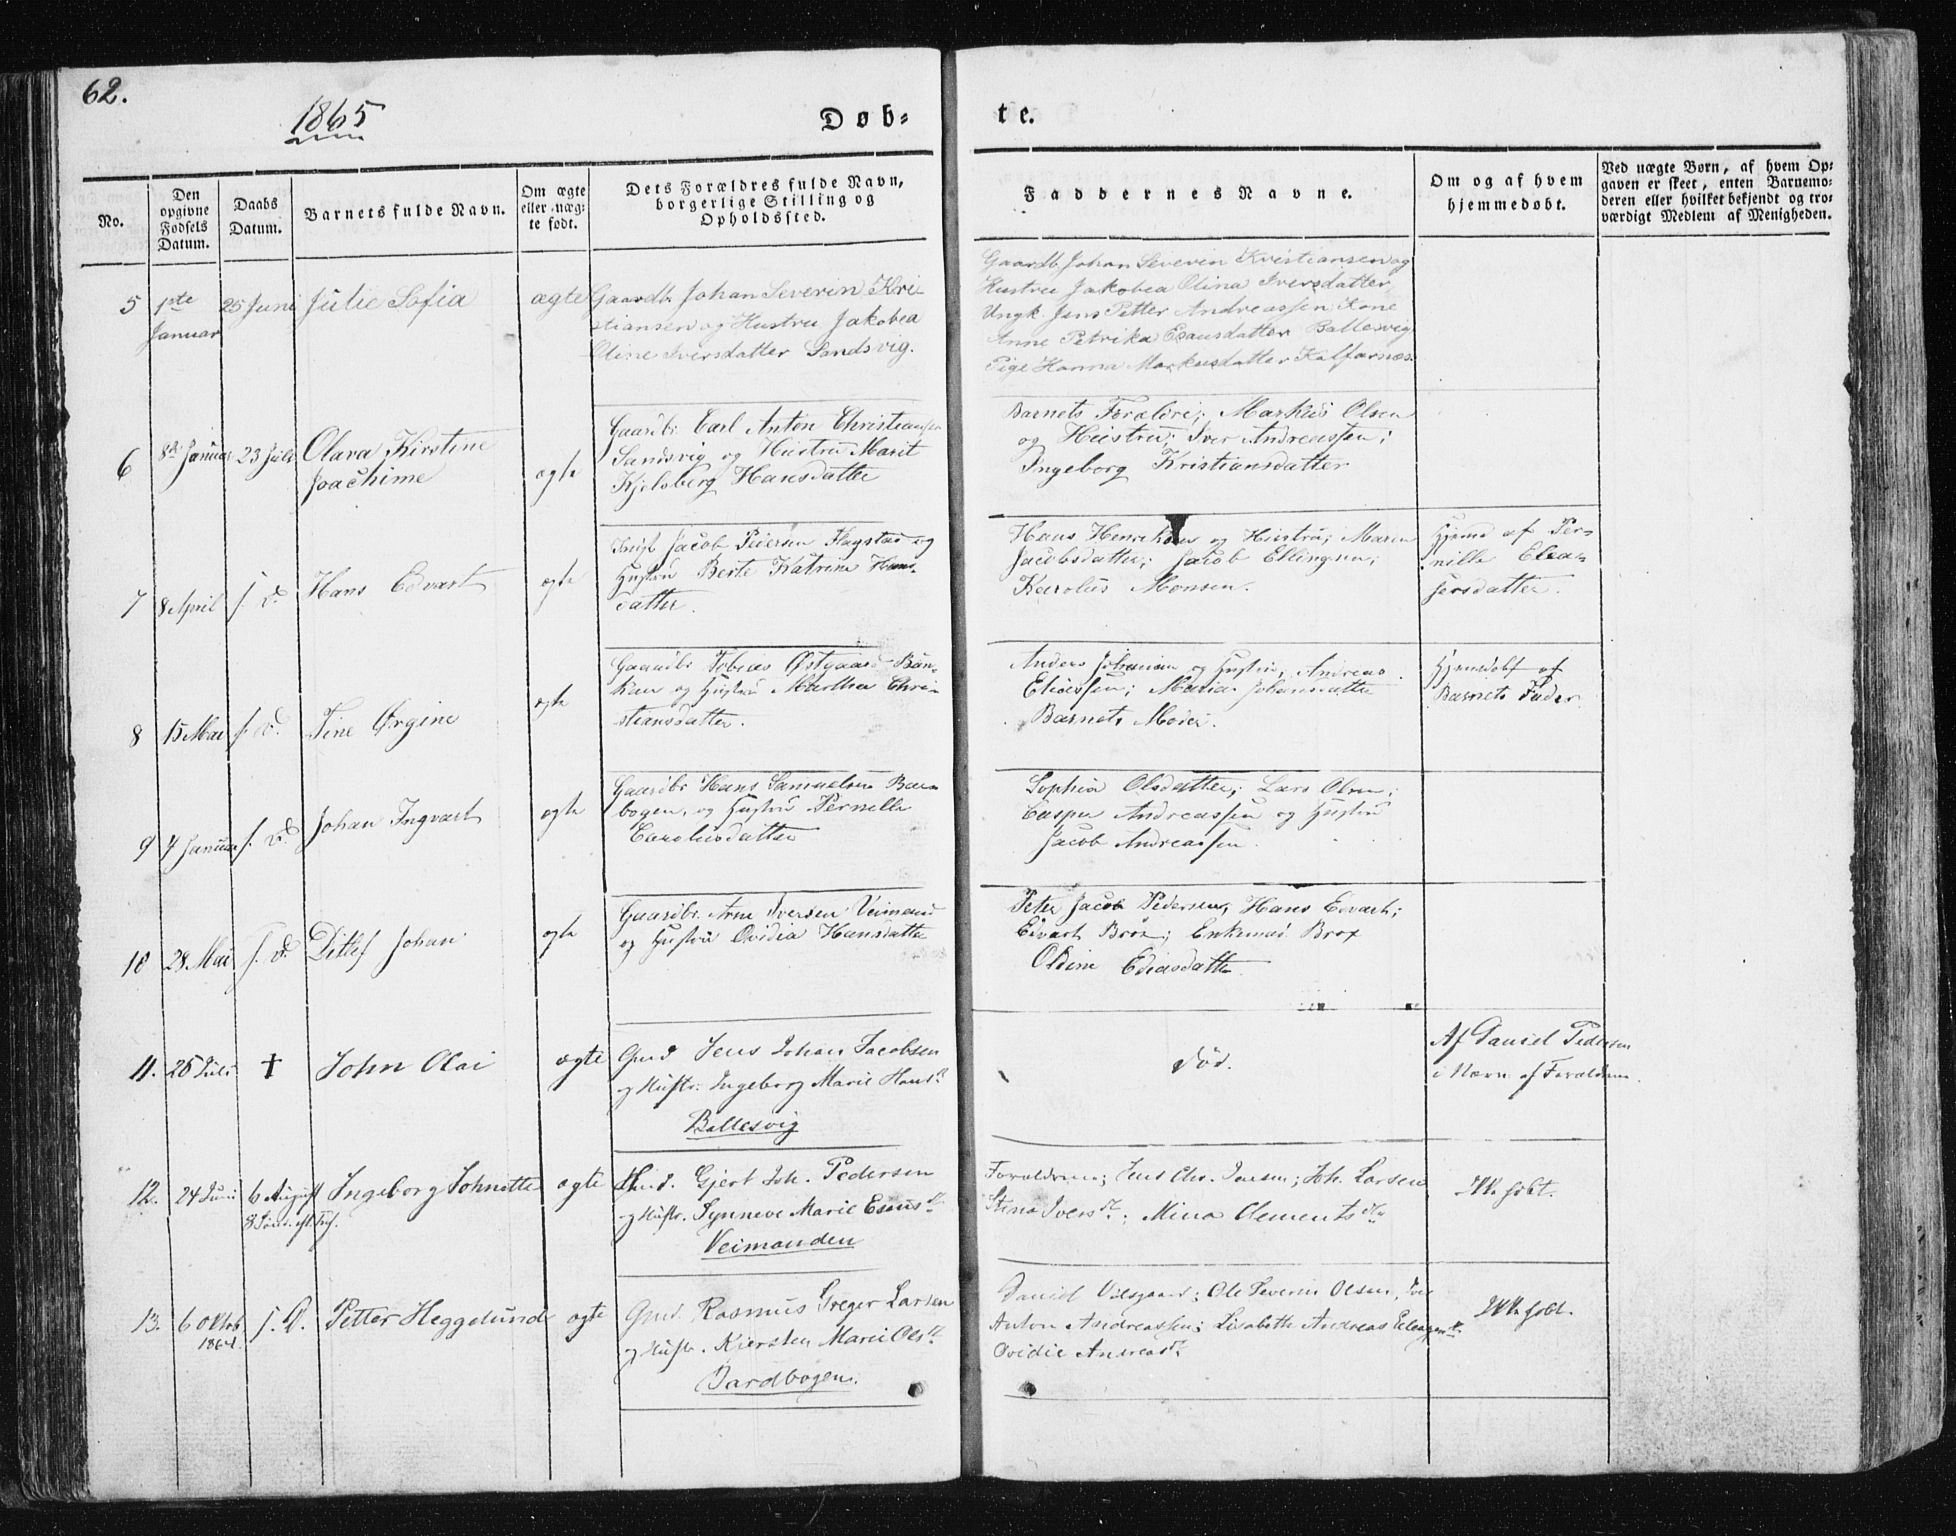 62.
1865
Døb-
te.
No.
Den opgivne Fødsels Datum.
Daabs Datum.
Barnets fulde Navn.
Om ægte eller uægte født.
Dets Forældres fulde Navn, borgerlige Stilling og Opholdssted.
Faddernes Navne.
Om og af hvem hjemmedøbt.
Ved uægte Børn, af hvem Op-
gaven er skeet, enten Barnemo-
deren eller hvilket bekjendt og tro-
værdigt Medlem af Menigheden.
5 1ste Januar 25 Juni Julie Sofia ægte
Gaardb. Johan Severin Kri-
stiansen og Hustru Jakobea
Oline Iversdatter Sandsvig.
Gaardb. Johan Severin Kristiansen og
Hustru Jakobea Olina Iversdatter,
Ungk. Jens Petter Andreassen Kone
Anne Petrika Esausdatter Ballesvig
Pige Hanna Markusdatter Kalfarnes.
6 8de Januar 23 Juli Olava Kirstine
Joachime
ægte
Gaardbr Carl Anton Christiansen
Sandsvig og Hustru Marit
Kjelsberg Hansdatter
Barnets Forældre; Markus Olsen
og Hustru; Iver Andreassen;
Ingeborg Kristiansdatter
7 8 April s. D. Hans Edvart ægte
Jacob Peiersen Flagstad og
Hustru Berte Katrine Hans-
datter.
Hans Henriksen og Hustru; Maren
Jacobsdatter; Jacob Ellingsen;
Karolus Monsen.
Hjemd af Per-
nille Elea-
sersdatter.
8 15 Mai s. D. Tine Ørgine ægte
Gaardbr Tobias Østgaard Bun-
ken og Hustru Martha Chri-
stiansdatter.
Anders Johansen og Hustru; Andreas
Eliassen; Maria Johansdatter
Barnets Moder.
Hjemdøbt af
Barnets Fader
9 7 Januar s. D. Johan Ingvart ægte
Gaardbr Hans Samuelsen Bar-
bogen, og Hustru Pernille
Carolusdatter
Sophia Olsdatter; Lars Olsen;
Casper Andreassen og Hustru
Jacob Andreassen.
10 28 Mai s. D. Ditlef Johan ægte
Gaardbr. Arne Iversen Veimand
og Hustru Ovidia Hansdatter
Peter Jacob Pedersen, Hans Edvart;
Edvart Brox; Enkemand Brox
Oldine Ediasdatter.
11. 26 Juli † John Olai ægte
Gmd Jens Johan Jacobsen
og Hustr. Ingeborg Marie Hansdt
Ballesvig
Død.
Af Daniel Pedersen
i Nærv. af Forældrene.
12. 24 Juni 6 August
8 Sønd. eft. Tref.
Ingeborg Johnette ægte
Gmd. Gjert Joh. Pedersen
og Hustr. Synneve Marie Esausdt
Veimanden
Forældrene; Jens Chr. Jensen; Joh. Larsen
Stina Iversdt; Mina Clementsdtr
Ikke hdbt.
13. 6 Oktob
1864.
s. D. Petter Heggelund ægte
Gmd. Rasmus Greger Larsen
og Hustr. Kiersten Marie Olsdt
Bardbogen.
Daniel Vilsgaard; Ole Severin Olsen,
Anton Andreassen; Lisabeth Andreas
Ovidie Andreasdt
Ikke hdbt.